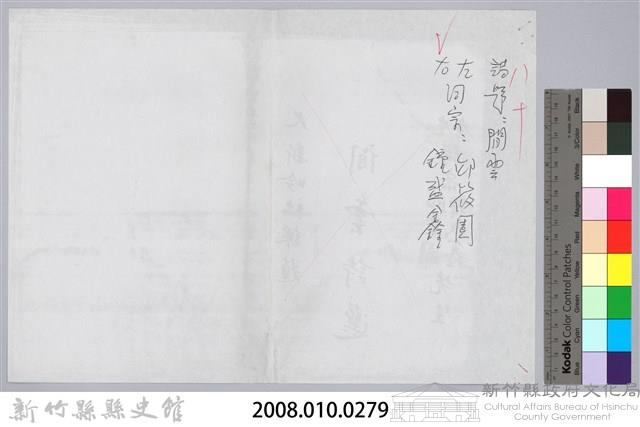 八十
詩題：閒雲
左詞宗：邱筱園
右　　　鐘盛鑫
閒雲詩選
新竹縣縣史館
2008.010.0279
新竹縣政府文化局
Cultural Affairs Bureau of Hsinchu
County Government
Kodak Color Control Patches
Blue
Cyan
Green
Yellow
Red
Magenta
White
3/Color
Black